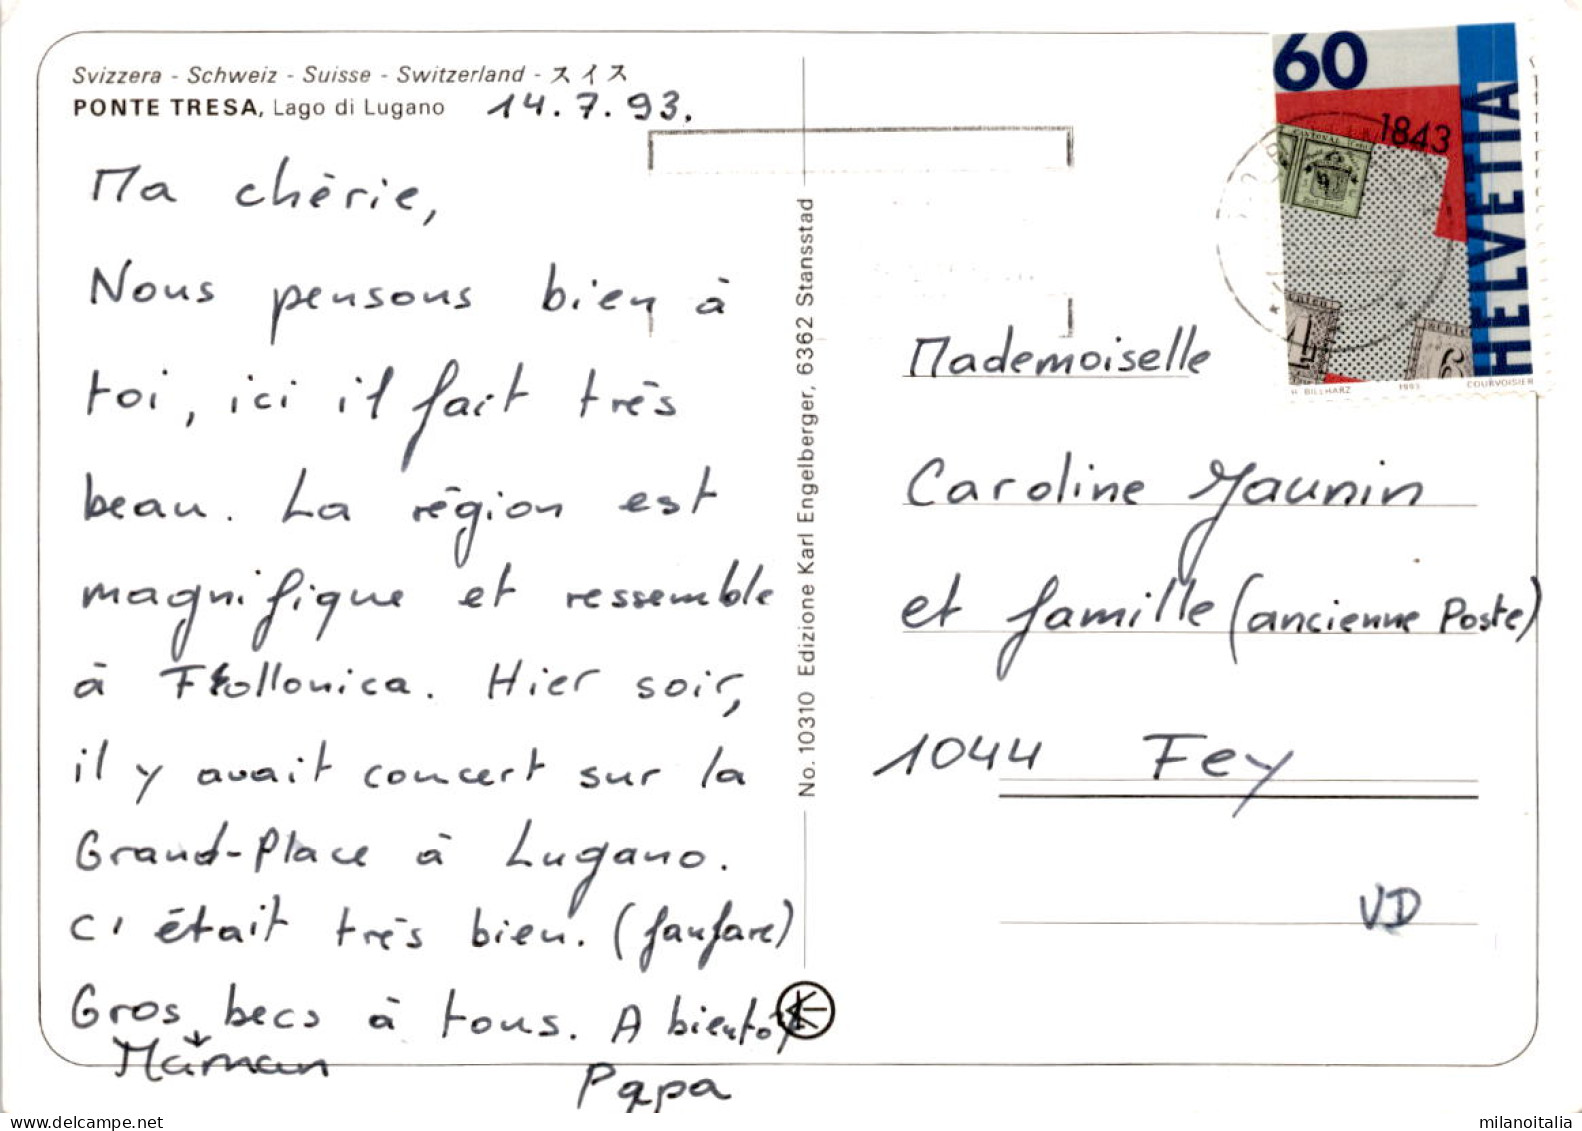 Svizzera - Schweiz - Suisse - Switzerland - スイス
PONTE TRESA, Lago di Lugano
14.7.93.
Ma chèrie,
Nous pensons bien à
toi, ici il fait très
beau. La région est
magnifique et ressemble
à Follonica. Hier soir,
il y avait concert sur la
Grand-Place à Lugano.
C'était très bien. (fanfare)
Gros becs à tous. A bientôt
Maman
Papa
No. 10310 Edizione Karl Engelberger, 6362 Stansstad
60
1843
HELVETIA
CANTONAL
H. BILLHARZ 1993 COURVOISIER
Mademoiselle
Caroline Jaunin
et famille (ancienne Poste)
1044 Fey
VD
www.delcampe.net
milanoitalia